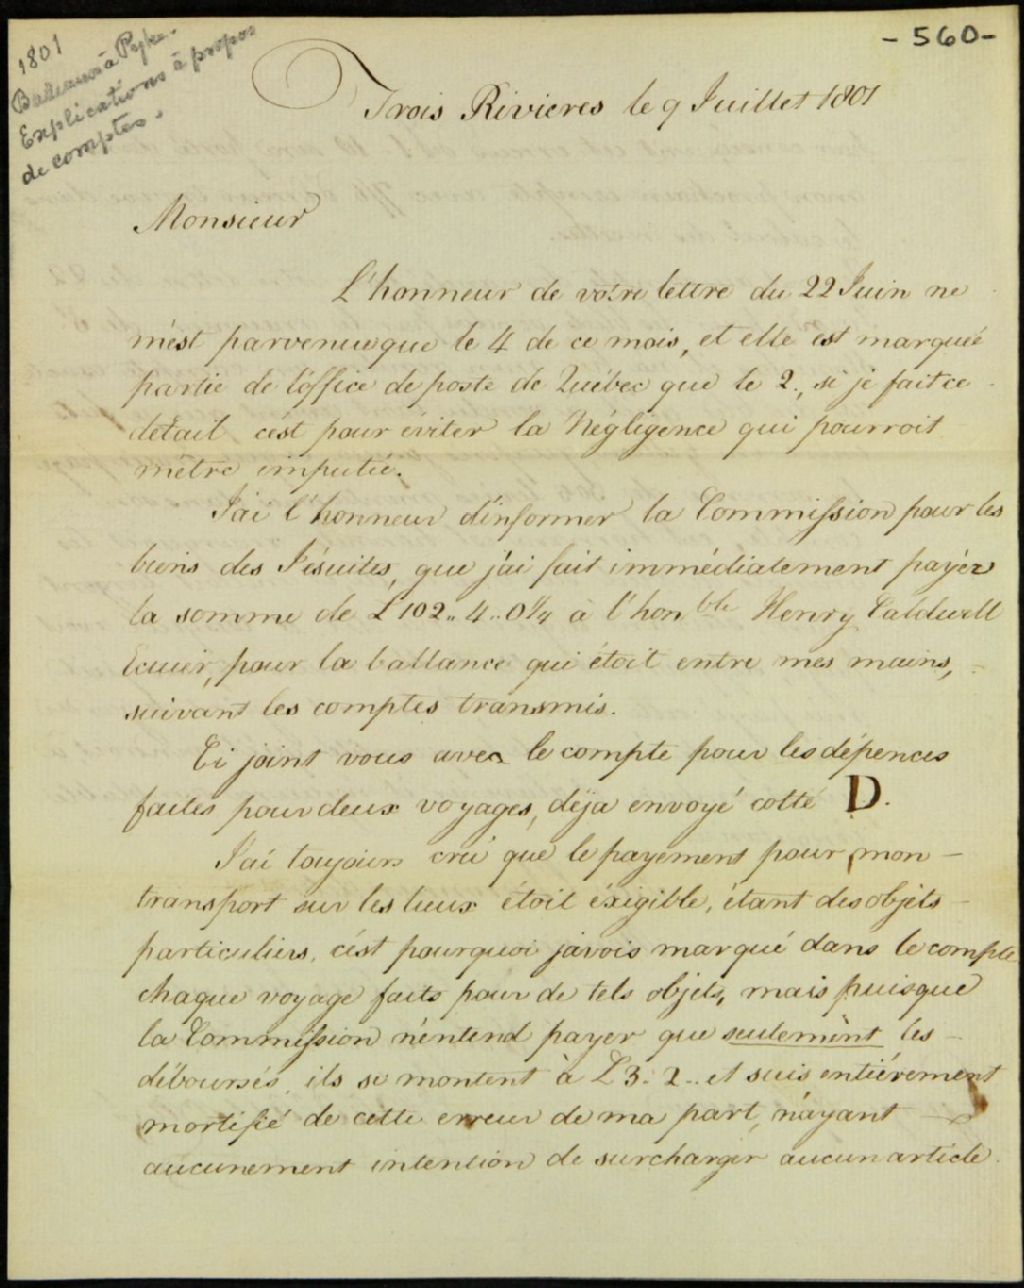 - 560 -
1801
Badeaux à Pyke.
Explications à propos
de comptes.
Trois Rivieres le 9 Juillet 1801
Monsieur
L'honneur de votre lettre du 22 Juin ne
m'est parvenue que le 4 de ce mois, et elle est marqueé
partie de l'óffice de poste de Québec que le 2., si je fait ce
détail c'ést pour éviter la Négligence qui pourroit
m'étre imputée.
J'ai l'honneur d'informer la Commission pour les
biens des Jésuites, que j'ai fait immédiatement payér
la somme de £102.. 4.. 0¼ à l'honble Henry Caldwell
Ecuier, pour la ballance qui étoit entre mes mains,
suivant les comptes transmis.
Ci joint vous avez le compte pour les dépences
faites pour deux voyages, déja envoyé cotté D.
J'ai toujours crû que le payement pour mon
transport sur les lieux étoit éxigible, étant des objets
particuliers, c'ést pourquoi j'avois marqué dans le compte
chaque voyage faits pour de tels objets, mais puisque
la Commission n'entend payer que seulemènt les
déboursés, ils se montent à £3. 2.. et suis entiérement
mortifié de cette erreur de ma part, n'ayant
aucunement intention de surcharger aucun article.